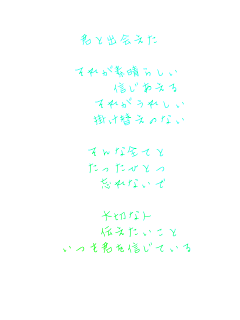 君と出会えた
それが素晴らしい
信じあえる
それがうれしい
掛け替えのない
そんな全てと
たったひとつ
忘れないで
大切な人
伝えたいこと
いつも君を信じている